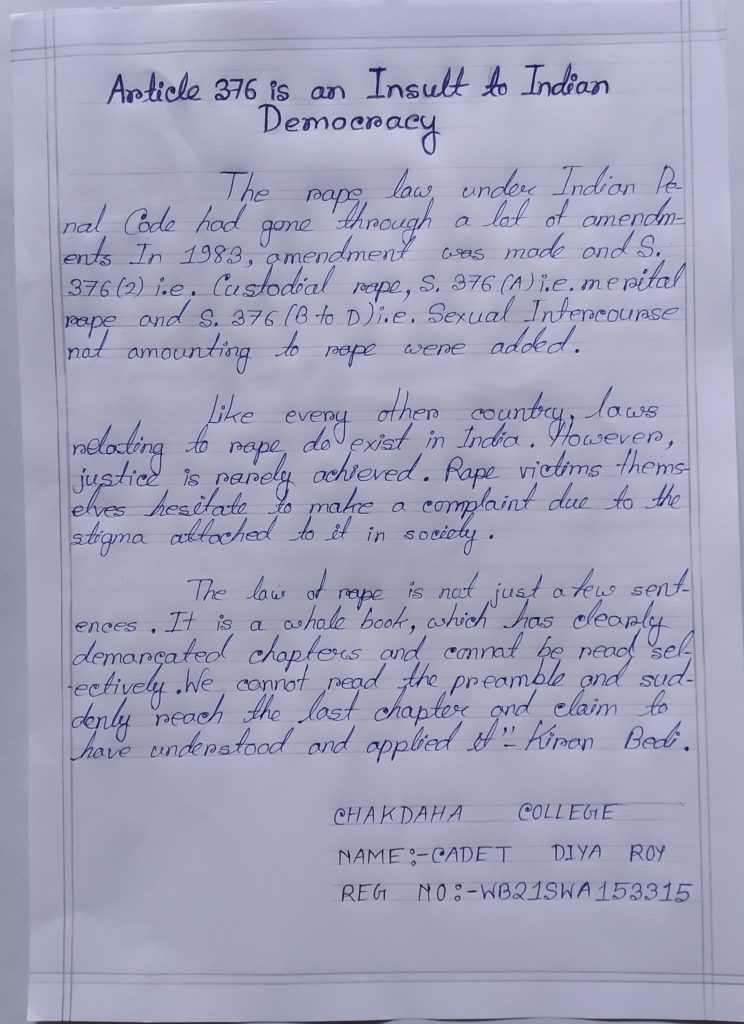 Article 376 is an Insult to Indian
Democracy
The rape law under Indian Pe-
nal Code had gone through a lot of amendm-
ents In 1983, amendment was made and S.
376(2) i.e. Custodial rape, S. 376 (A) i.e. merital
rape and S. 376 (B to D) i.e. Sexual Intercourse
not amounting to rape were added.
Like every other country, laws
relating to rape do exist in India. However,
justice is rarely achieved. Rape victims thems-
elves hesitate to make a complaint due to the
stigma attached to it in society.
The law of rape is not just a few sent-
ences. It is a whole book, which has clearly
demarcated chapters and connat be read sel-
ectively. We cannot read the preamble and sud-
denly reach the last chapter and claim to
have understood and applied it"- Kiran Bedi.
CHAKDAHA COLLEGE
NAME:-CADET DIYA ROY
REG NO:-WB21SWA153315